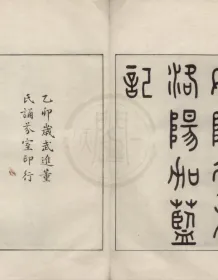 洛陽加藍
記
乙卯歲武進董
氏誦芬室印行